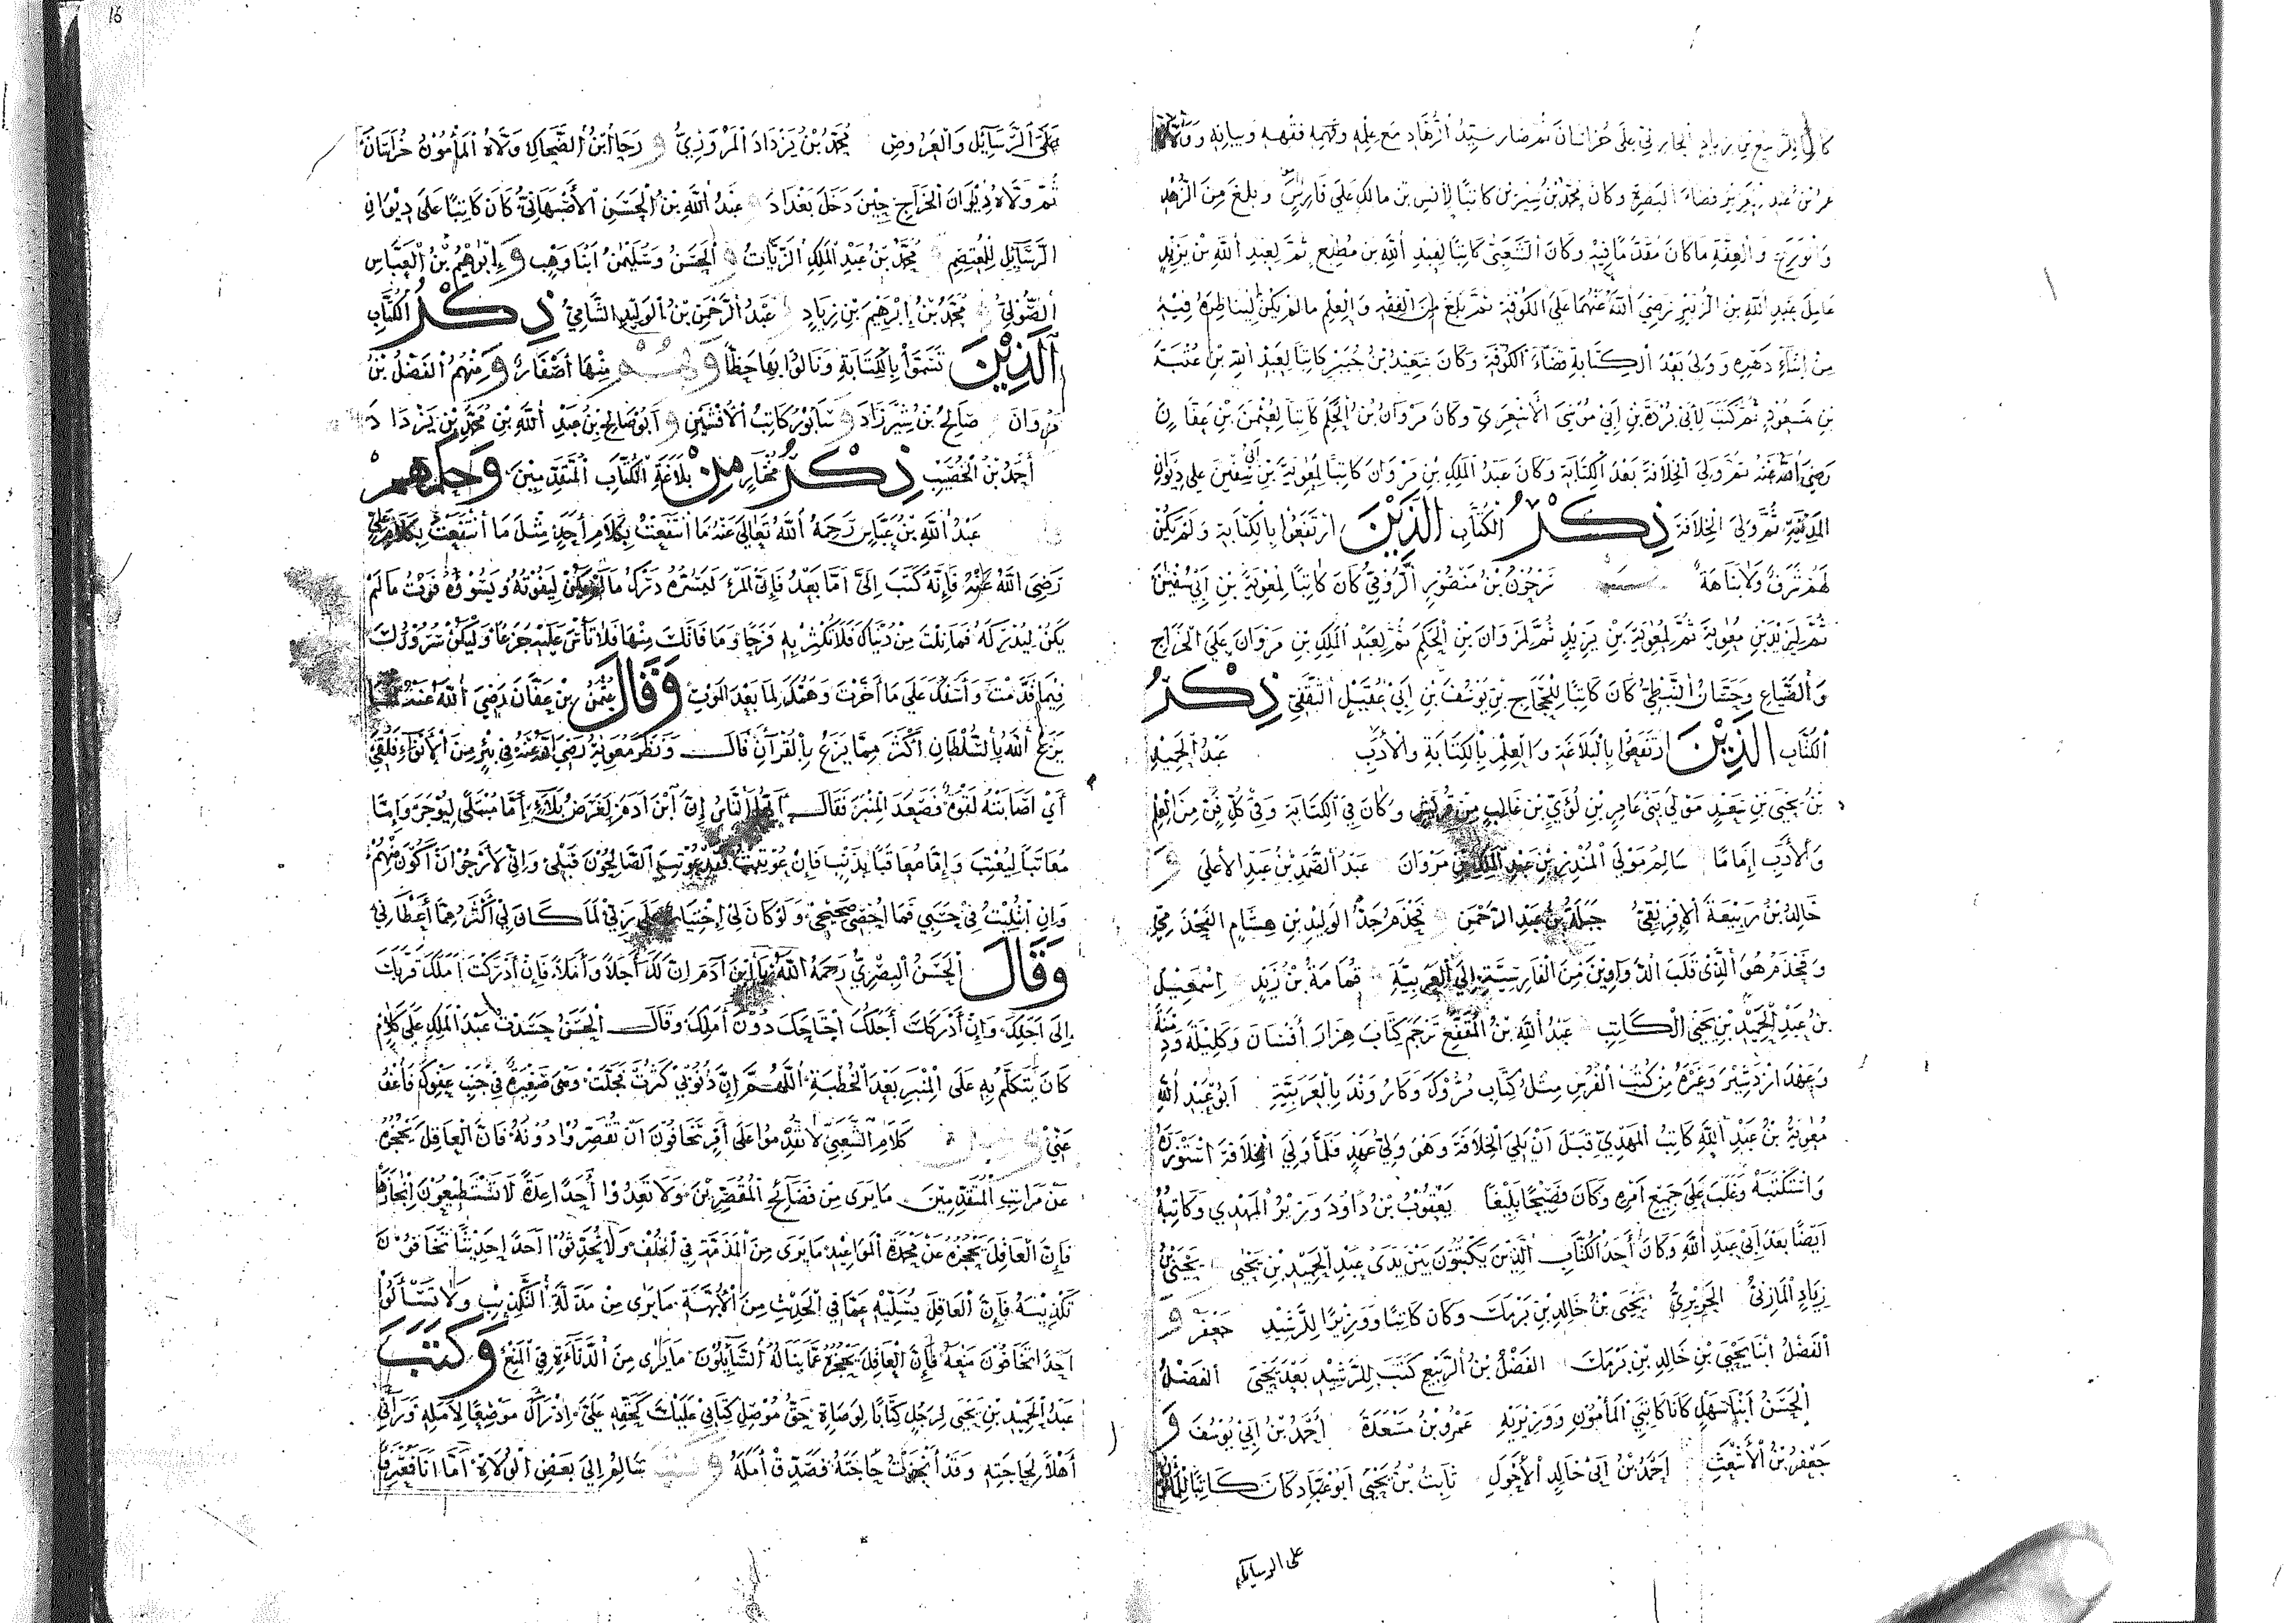 كاتبا للربيع بن زياد الحارثي على خراسان ثم صار سيد الزهاد مع علمه وفهمه فقهه وبيانه وولاه
عمر بن عبد العزيز قضاء البصرة وكان محمد بن سيرين كاتبا لأنس بن مالك على فارس وبلغ من الزهد
والورع والعفة ما كان مقدما فيه وكان الشعبي كاتبا لعبد الله بن مطيع ثم لعبد الله بن يزيد
عامل عبد الله بن الزبير رضي الله عنهما على الكوفة ثم بلغ من الفقه والعلم ما لم يكن ليناظره فيه
من ابناء دهره وولي بعد الكتابة قضاء الكوفة وكان سعيد بن جبير كاتبا لعبد الله بن عتبة
بن مسعود ثم كتب لأبي بردة بن ابي موسى الأشعري وكان مروان بن الحكم كاتبا لعثمن بن عفان
رضي الله عنه ثم ولي الخلافة بعد الكتابة وكان عبد الملك بن مروان كاتبا لمعوية بن أبي سفين على ديوان
المدينة ثم ولي الخلافة ذكر الكتاب الذين ارتفعوا بالكتابة ولم يكن
لهم شرف ولا نباهة سرجون بن منصور الرومي كان كاتبا لمعوية بن ابي سفين
ثم ليزيد بن معوية ثم لمعوية بن يزيد ثم لمروان بن الحكم ثم لعبد الملك بن مروان على الخراج
والضياع وحسان النبطي كان كاتبا للحجاج بن يوسف بن ابي عقيل الثقفي ذكر
الكتاب الذين ارتفعوا بالبلاغة والعلم بالكتابة والأدب عبد الحميد
بن يحيى بن سعيد مولى بني عامر بن لؤي بن غالب من قريش وكان في الكتابة وفي كل فن من العلم
والأدب إماما سالم مولى المنذر بن عبد الملك بن مروان عبد الصمد بن عبد الأعلى و
خالد بن ربيعة الإفريقي جبلة بن عبد الرحمن قحذم جد الوليد بن هشام القحذمي
وقحذم هو الذي قلب الدواوين من الفارسية إلى العربية ثمامة بن زيد اسمعيل
بن عبد الحميد بن يحيى الكاتب عبد الله بن المقفع ترجم كتاب هزار أفسان وكليلة ودمنة
وعهد أردشير وغيره من كتب الفرس مثل كتاب مزوك وكاروند بالعربية أبو عبيد الله
معوية بن عبد الله كاتب المهدي قبل أن يلي الخلافة وهو ولي عهد فلما ولي الخلافة استوزره
واستكتبه وغلب على جميع أمره وكان فصيحا بليغا يعقوب بن داود وزير المهدي وكاتبه
أيضا بعد ابي عبيد الله وكان أحد الكتاب الذين يكتبون بين يدي عبد الحميد بن يحيى يحيى بن
زياد المازني الحريري يحيى بن خالد بن برمك وكان كاتبا ووزيرا للرشيد جعفر و
الفضل ابنا يحيى بن خالد بن برمك الفضل بن الربيع كتب للرشيد بعد يحيى الفضل
الحسن ابنا سهل كانا كاتبي المأمون ووزيريه عمرو بن مسعدة أحمد بن أبي يوسف و
جعفر بن الأشعث أحمد بن أبي خالد الأحول ثابت بن يحيى أبو عباد كان كاتبا للمأمون
على الرسايل
16
على الرسايل والعروض محمد بن يزداد المروزي و رجا ابن الضحاك ولاه المأمون خراسان
ثم ولاه ديوان الخراج حين دخل بغداد عبد الله بن الحسن الأصبهاني كان كاتبا على ديوان
الرسايل للمعتصم محمد بن عبد الملك الزيات و الحسن وسليمن ابنا وهب و إبرهيم بن العباس
الصولي محمد بن إبرهيم بن زياد عبد الرحمن بن الوليد الشامي ذكر الكتاب
الذين تسموا بالكتابة ونالوا بها حظا وهم منها أصفار و منهم الفضل بن
مروان صالح بن شيرزاد و سابور كاتب الأفشين و أبو صالح بن عبد الله بن محمد بن يزداد
أحمد بن الخصيب ذكر مختار من بلاغة الكتاب المتقدمين وحكمهم
عبد الله بن عباس رحمه الله تعالى عنه ما انتفعت بكلام أحد مثل ما انتفعت بكلام علي
رضي الله عنه فإنه كتب إلي اما بعد فإن المرء ليسره درك ما لم يكن ليفوته ويسوؤه فوت ما لم
يكن ليدركه فما نلت من دنياك فلا تكثر به فرحا وما فاتك منها فلا تأس عليه جزعا وليكن سرورك
فيما قدمت وأسفك على ما أخرت وهمك لما بعد الموت وقال عثمن بن عفان رضي الله عنه لما
يزع الله بالسلطان أكثر مما يزع بالقرآن قال ونظر معوية رضي الله عنه في بئر من الأبواء فلقي
أي اصابته لقوة فصعد المنبر فقال أيها الناس إن ابن آدم لغرض بلاء إما مبتلى ليؤجر وإما
معاتبا ليعتب وإما معاقبا بذنب فإن عوتبت فقد عوتب الصالحون قبلي وإني لأرجو أن أكون منهم
وإن ابتليت في جسبي فما احصي صحيحي ولو كان لي إختيار على ربي لما كان لي أكثر مما أعطاني
وقال الحسن البصري رحمه الله يا ابن آدم إن لك أجلا وأملا فإن أدركت أملك قربك
إلى أجلك وإن أدركك أجلك اجتاحك دون أملك وقال الحسن حسدت عبد الملك على كلام
كان يتكلم به على المنبر بعد الخطبة اللهم إن ذنوبي كثرت فجلت وهي صغيرة في جنب عفوك فاعف
عني ومن كلام الشعبي لا تقدموا على أمر تخافون أن تقصروا دونه فان العاقل يحجزه
عن مراتب المتقدمين ما يرى من فضائح المقصرين ولا تعدوا أحدا عدة لا تستطيعون إنجازها
فإن العاقل يحجزه عن محمدة المواعيد ما يرى من المذمة في الخلف ولا تحدثوا أحدا حديثا تخافون
تكذيبه فإن العاقل يسليه عما في الحديث من الأبهة ما يرى من مذلة التكذيب ولا تسألوا
أحدا تخافون منعه فإن العاقل يحجزه عما يناله السايلون ما يرى من الدناءة في المنع وكتب
عبد الحميد بن يحيى لرجل كتابا لوصاة حق موصل كتابي عليك كحقه علي إذ رآك موضعا لأمله ورآني
أهلا لحاجته وقد أنجزت حاجته فصدق أمله وكتب سالم إلى بعض الولاة أما أنا